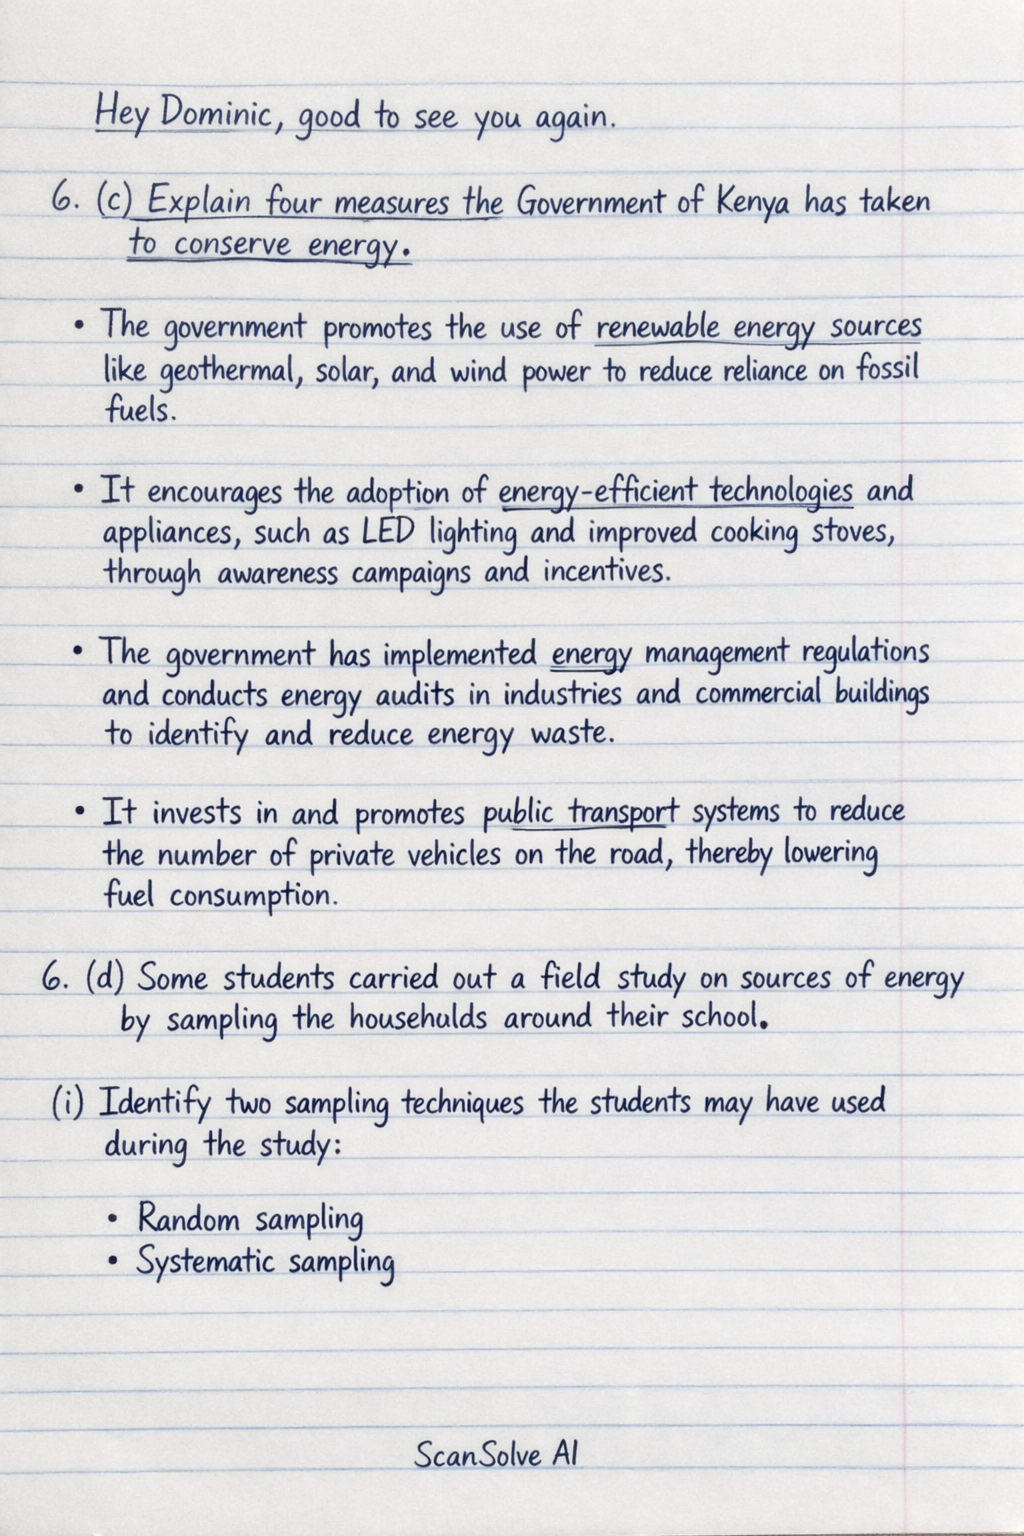 Hey Dominic, good to see you again.
6. (c) Explain four measures the Government of Kenya has taken
to conserve energy.
• The government promotes the use of renewable energy sources
like geothermal, solar, and wind power to reduce reliance on fossil
fuels.
• It encourages the adoption of energy-efficient technologies and
appliances, such as LED lighting and improved cooking stoves,
through awareness campaigns and incentives.
• The government has implemented energy management regulations
and conducts energy audits in industries and commercial buildings
to identify and reduce energy waste.
• It invests in and promotes public transport systems to reduce
the number of private vehicles on the road, thereby lowering
fuel consumption.
6. (d) Some students carried out a field study on sources of energy
by sampling the househulds around their school.
(i) Identify two sampling techniques the students may have used
during the study:
• Random sampling
• Systematic sampling
ScanSolve AI